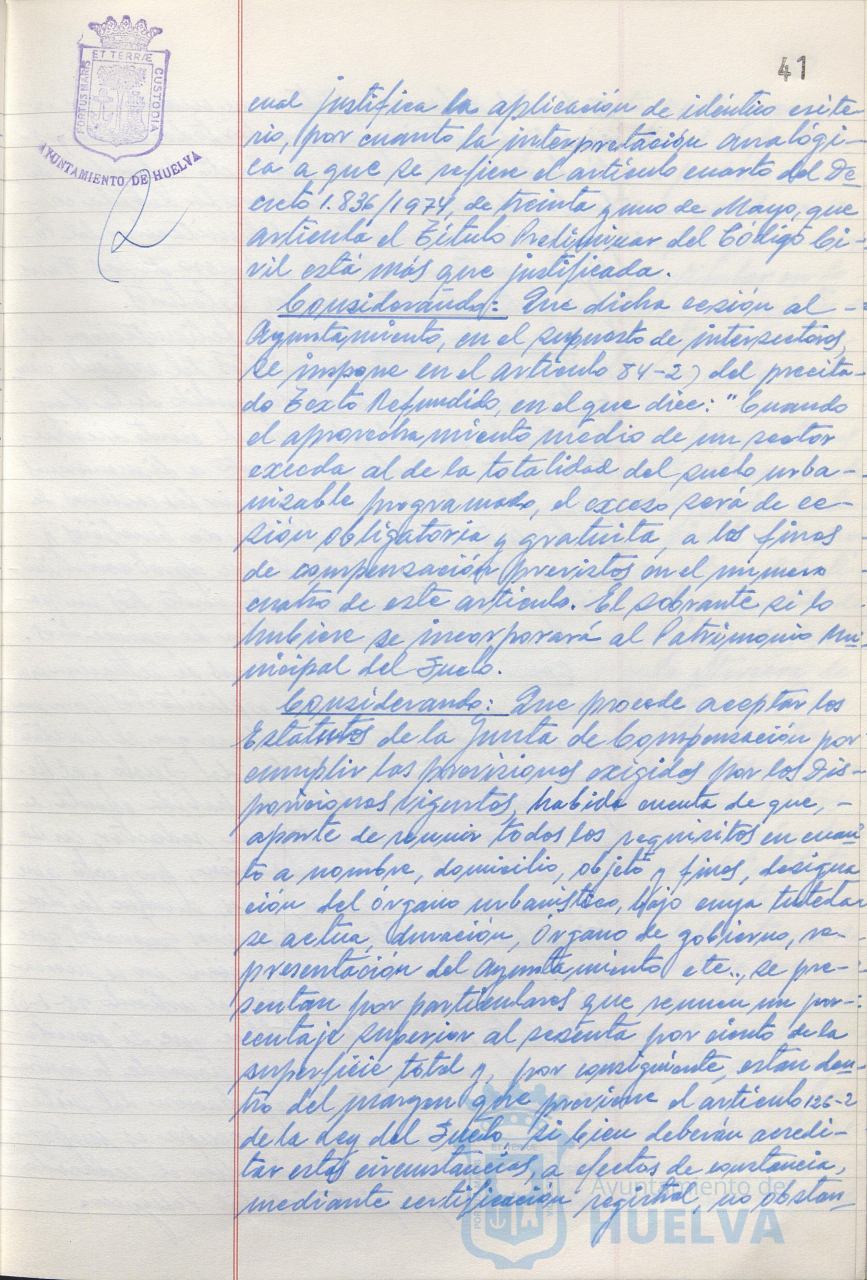 41
PORTUS MARIS ET TERRÆ CUSTODIA
AYUNTAMIENTO DE HUELVA
cual justifica la aplicación de idéntico crite
rio, por cuanto la interpretación analógi-
ca a que se refiere el artículo cuarto del De
creto 1.836/1974, de treinta y uno de Mayo, que
articula el Título Preliminar del Código Ci-
vil está más que justificada.
Considerando: Que dicha cesión al -
Ayuntamiento, en el supuesto de intersectores,
se impone en el artículo 84-2) del precita-
do Texto Refundido, en el que dice: "Cuando
el aprovechamiento medio de un sector
exceda al de la totalidad del suelo urba-
nizable programado, el exceso será de ce-
sión obligatoria y gratuita, a los fines
de compensación previstos en el numero
cuatro de este artículo. El sobrante si lo
hubiere se incorporará al Patrimonio Mu-
nicipal del Suelo.
Considerando: Que procede aceptar los
Estatutos de la Junta de Compensación por
cumplir las previsiones exigidas por las Dis-
posiciones vigentes, habida cuenta de que, -
aparte de reunir todos los requisitos en cuan
to a nombre, domicilio, objeto y fines, designa
ción del órgano urbanístico, bajo cuya tutela
se actua, duración, Órgano de gobierno, re-
presentación del Ayuntamiento etc.., se pre-
sentan por particulares que reunen un por-
centaje superior al sesenta por ciento de la
superficie total y, por consiguiente, estan den-
tro del margen que previene el artículo 126-2
de la Ley del Suelo si bien deberán acredi-
tar estas circunstancias, a efectos de constancia,
mediante certificación registral, no obstan
Ayuntamiento de
HUELVA